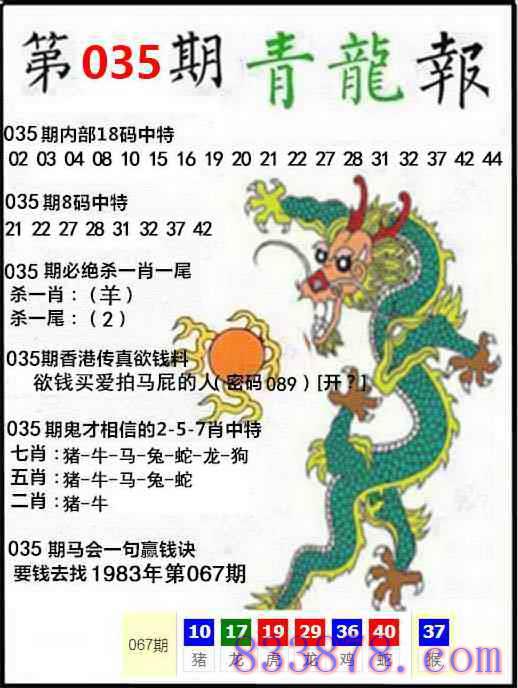 第035期 青龍報
035期内部18码中特
02 03 04 08 10 15 16 19 20 21 22 27 28 31 32 37 42 44
035期8码中特
21 22 27 28 31 32 37 42
035 期必绝杀一肖一尾
杀一肖：（羊）
杀一尾：（2）
035期香港传真欲钱料
欲钱买爱拍马屁的人(密码089)[开？]
035期鬼才相信的2-5-7肖中特
七肖：猪-牛-马-兔-蛇-龙-狗
五肖：猪-牛-马-兔-蛇
二肖：猪-牛
035 期马会一句赢钱诀
要钱去找1983年第067期
067期 10 17 19 29 36 40 37
猪 龙 虎 龙 鸡 蛇 猴
833878.com